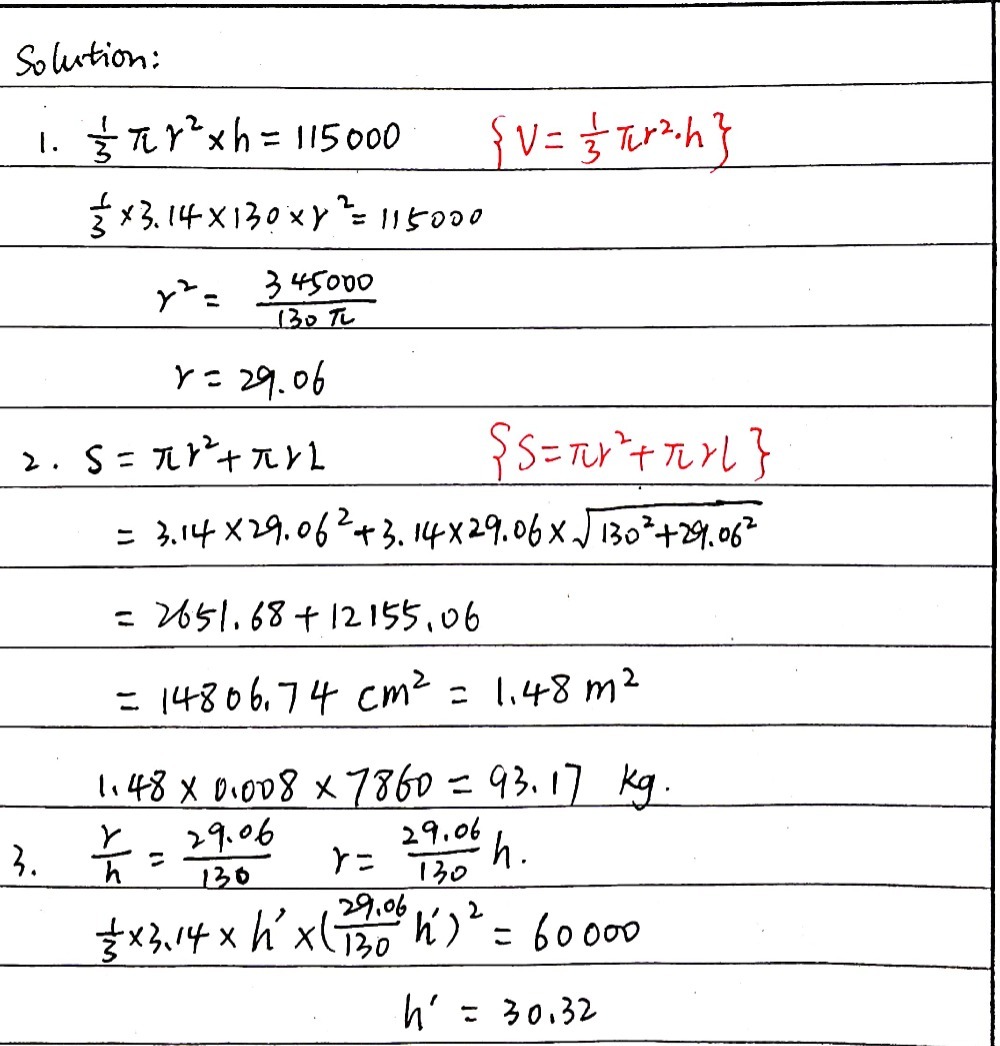 Solution:
1. 1/3 πr² × h = 115000 {V = 1/3 πr²·h}
1/3 × 3.14 × 130 × r² = 115000
r² = 345000/130π
r = 29.06
2. S = πr² + πrL {S = πr² + πrl}
= 3.14 × 29.06² + 3.14 × 29.06 × √(130² + 29.06²)
= 2651.68 + 12155.06
= 14806.74 cm² = 1.48 m²
1.48 × 0.008 × 7860 = 93.17 kg.
3. r/h = 29.06/130 r = 29.06/130 h.
1/3 × 3.14 × h′ × (29.06/130 h′)² = 60000
h′ = 30.32